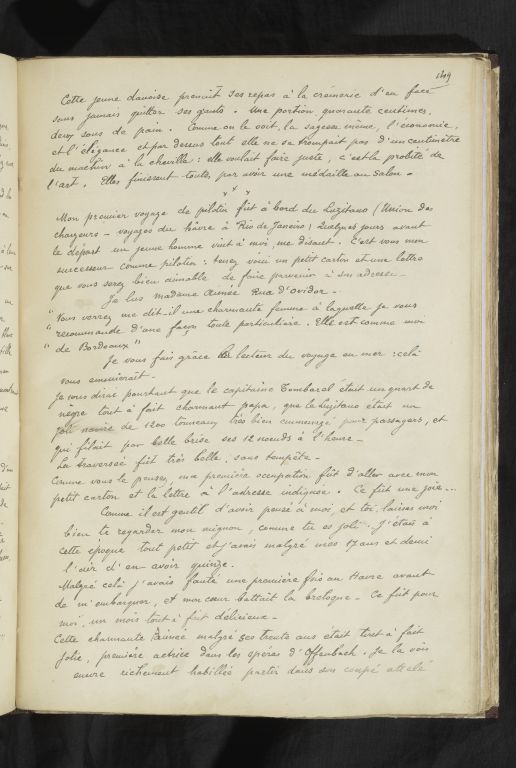 149
Cette jeune danoise prenait ses repas à la crémerie d'en face
sans jamais quitter ses gants. Une portion, quarante centimes,
deux sous de pain. Comme on le voit, la sagesse même, l'économie,
et l'élégance et par dessus tout elle ne se trompait pas d'un centimètre
du machin à la cheville : elle voulait faire juste, c'est la probité de
l'art. Elles finissent toutes par avoir une médaille au Salon.
x x x
Mon premier voyage de pilotin fût à bord du Luzitano (Union des
chargeurs - voyages du hâvre à Rio de Janeiro) Quelques jours avant
le départ un jeune homme vint à moi me disant. C'est vous mon
successeur comme pilotin : tenez voici un petit carton et une lettre
que vous serez bien aimable de faire parvenir à son adresse -
Je lus madame Aimée Rua d'Ovidor -
"Vous verrez me dit-il une charmante femme à laquelle je vous
"recommande d'une façon toute particulière. Elle est comme moi
"de Bordeaux"
Je vous fais grâce lecteur du voyage en mer : celà
vous ennuierait -
Je vous dirai pourtant que le capitaine Tombarel était un quart de
nègre tout à fait charmant papa, que le Luzitano était un
joli navire de 1200 tonneaux très bien emménagé pour passagers, et
qui filait par belle brise ses 12 nœuds à l'heure -
La traversée fût très belle, sans tempête -
Comme vous le pensez, ma première occupation fût d'aller avec mon
petit carton et la lettre à l'adresse indiquée. Ce fût une joie...
Comme il est gentil d'avoir pensé à moi, et toi laisse moi
bien te regarder mon mignon, comme tu es joli. J'étais à
cette époque tout petit et j'avais malgré mes 17 ans et demi
l'air d'en avoir quinze.
Malgré celà j'avais fauté une première fois au Havre avant
de m'embarquer, et mon cœur battait la breloque - Ce fût pour
moi, un mois tout à fait délicieux -
Cette charmante Aimée malgré ses trente ans était tout à fait
jolie, première actrice dans les opéras d'Offenbach. Je la vois
encore richement habillée partir dans son coupé attelé